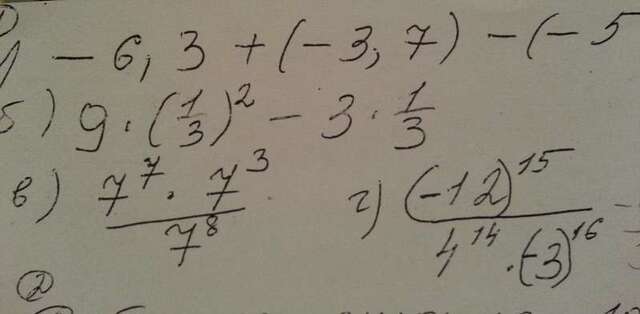 1)
− 6,3 + (− 3,7) − (− 5
б) 9 · (1/3)² − 3 · 1/3
в) 7⁷ · 7³ / 7⁸ г) (−12)¹⁵ / 4¹⁴ · (−3)¹⁶
②